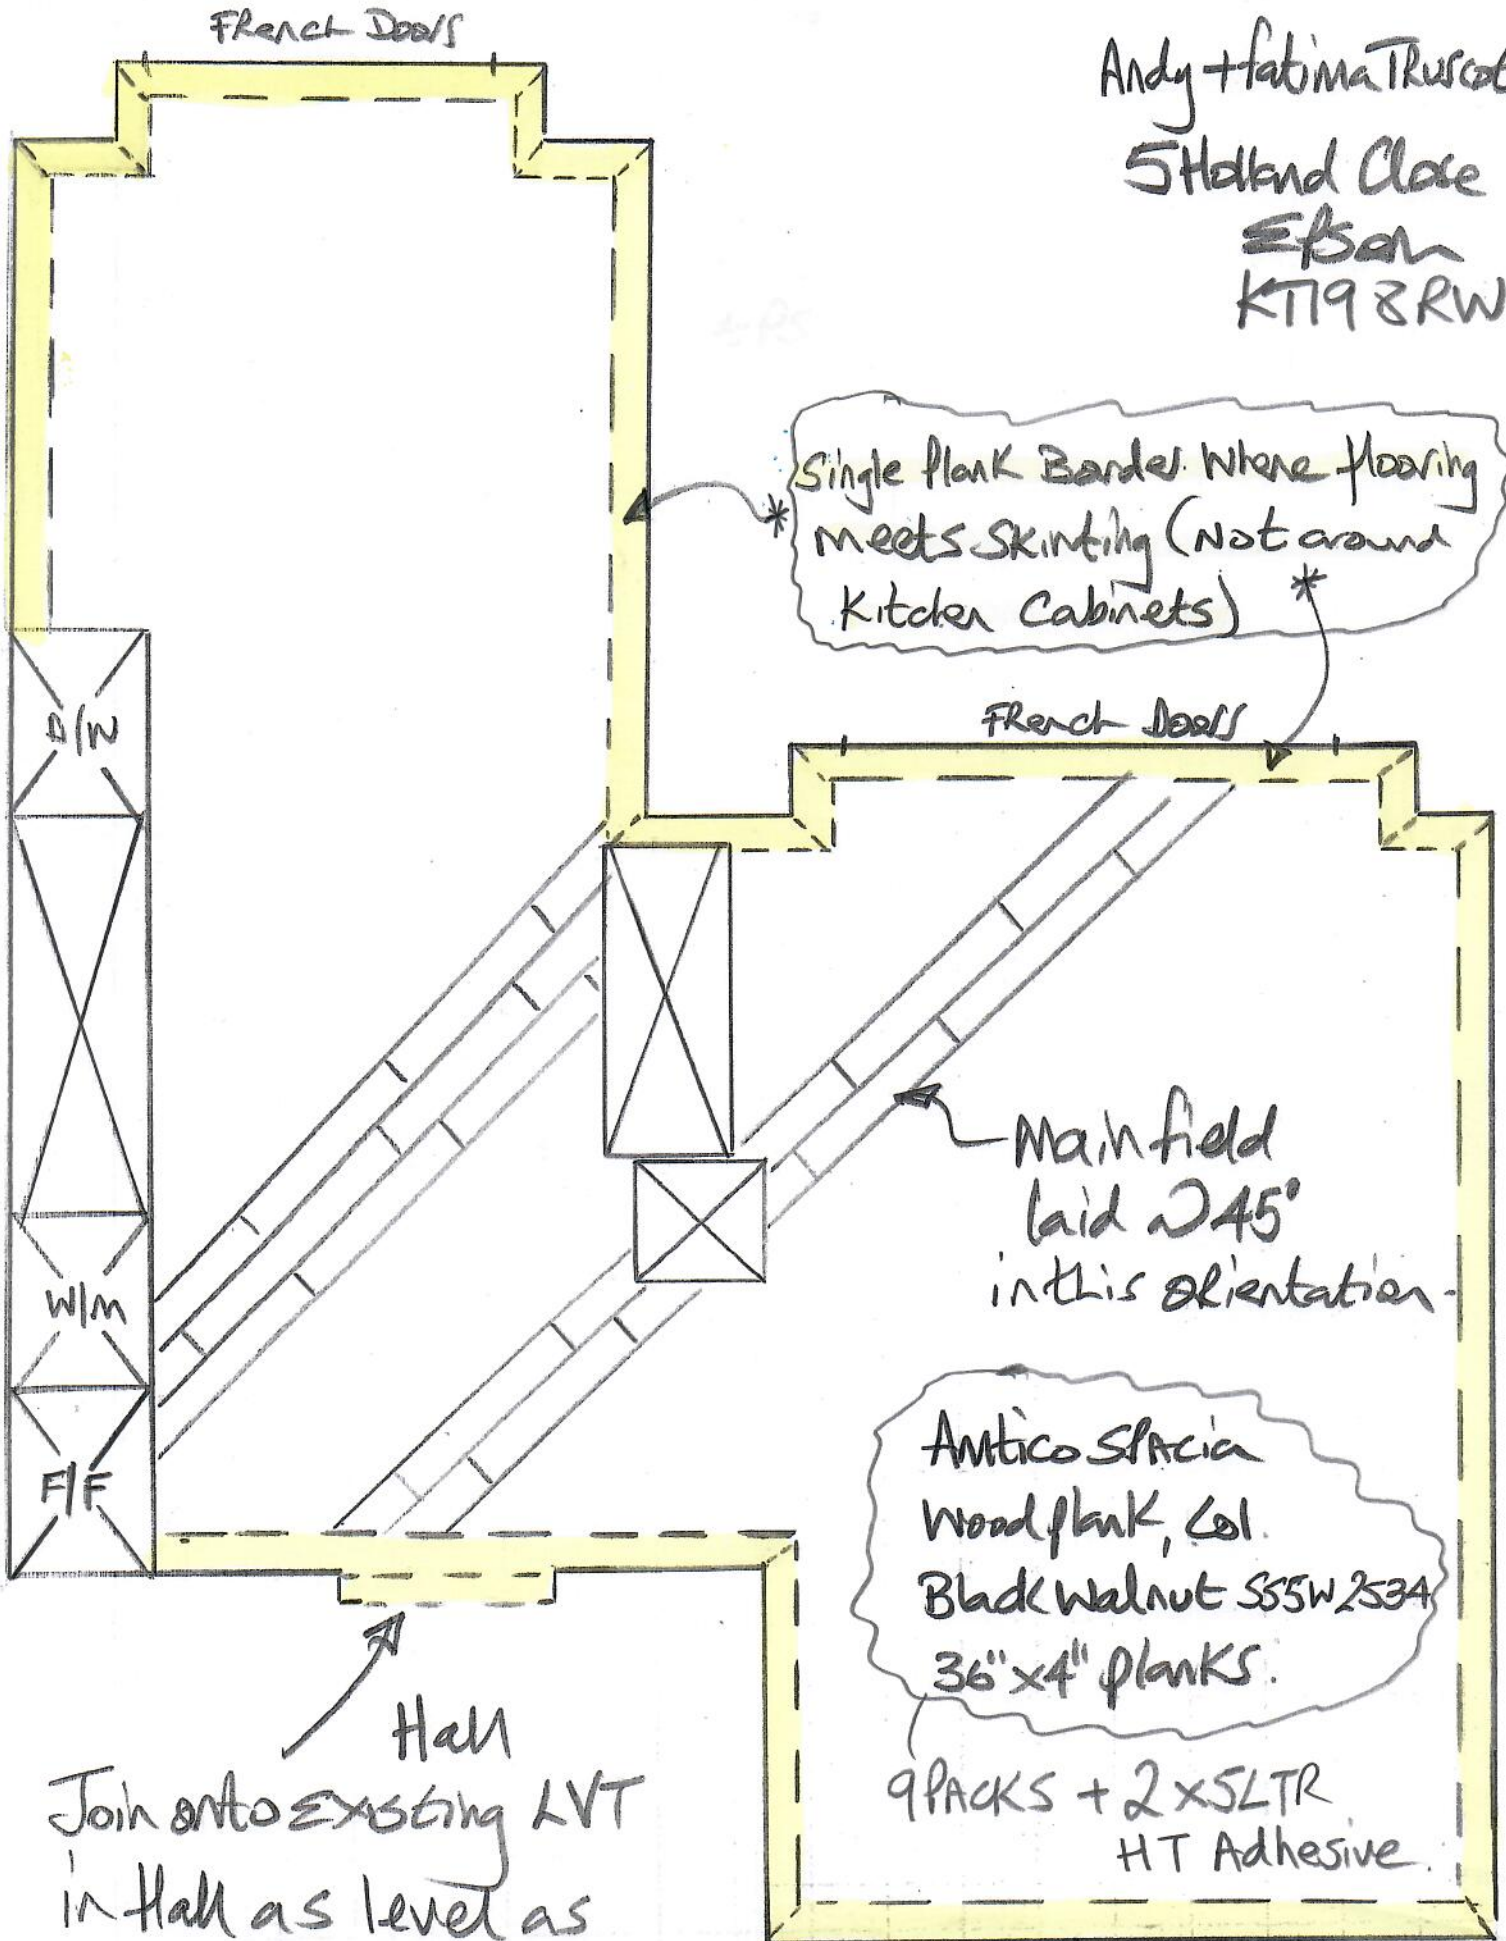 French Doors
Andy + fatima Truscot
5 Holland Close
Epsom
KT19 8RW
Single Plank Border Where flooring
* meets skirting (Not around
Kitchen Cabinets) *
French Doors
D/W
Main field
laid @ 45°
in this orientation.
W/M
F/F
Amtico SPAcia
Wood plank, Col.
Black Walnut SS5W2534
36" x 4" planks.
9 PACKS + 2 x 5LTR
HT Adhesive.
Hall
Join onto Existing LVT
in Hall as level as